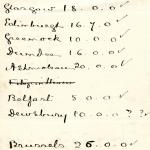 Glasgow 18.0.0✓
Edinburgh 16.7.0✓
Greenock 10.0.0✓
Dundee 16.0.0✓
20.0.0✓
Belfast 5.0.0✓
Dewsbury 10.0.0??✓
Brussels 26.0.0✓